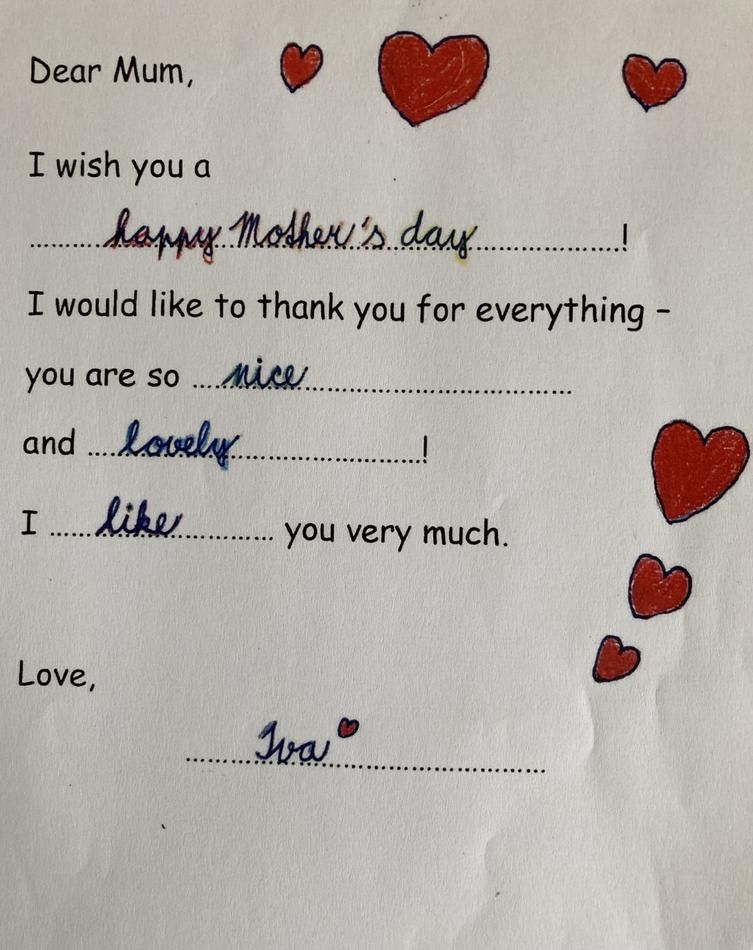 Dear Mum,
I wish you a
..........happy Mother's day....................!
I would like to thank you for everything –
you are so ....nice..............................
and ....lovely.......................!
I ......like............ you very much.
Love,
........Iva.........................